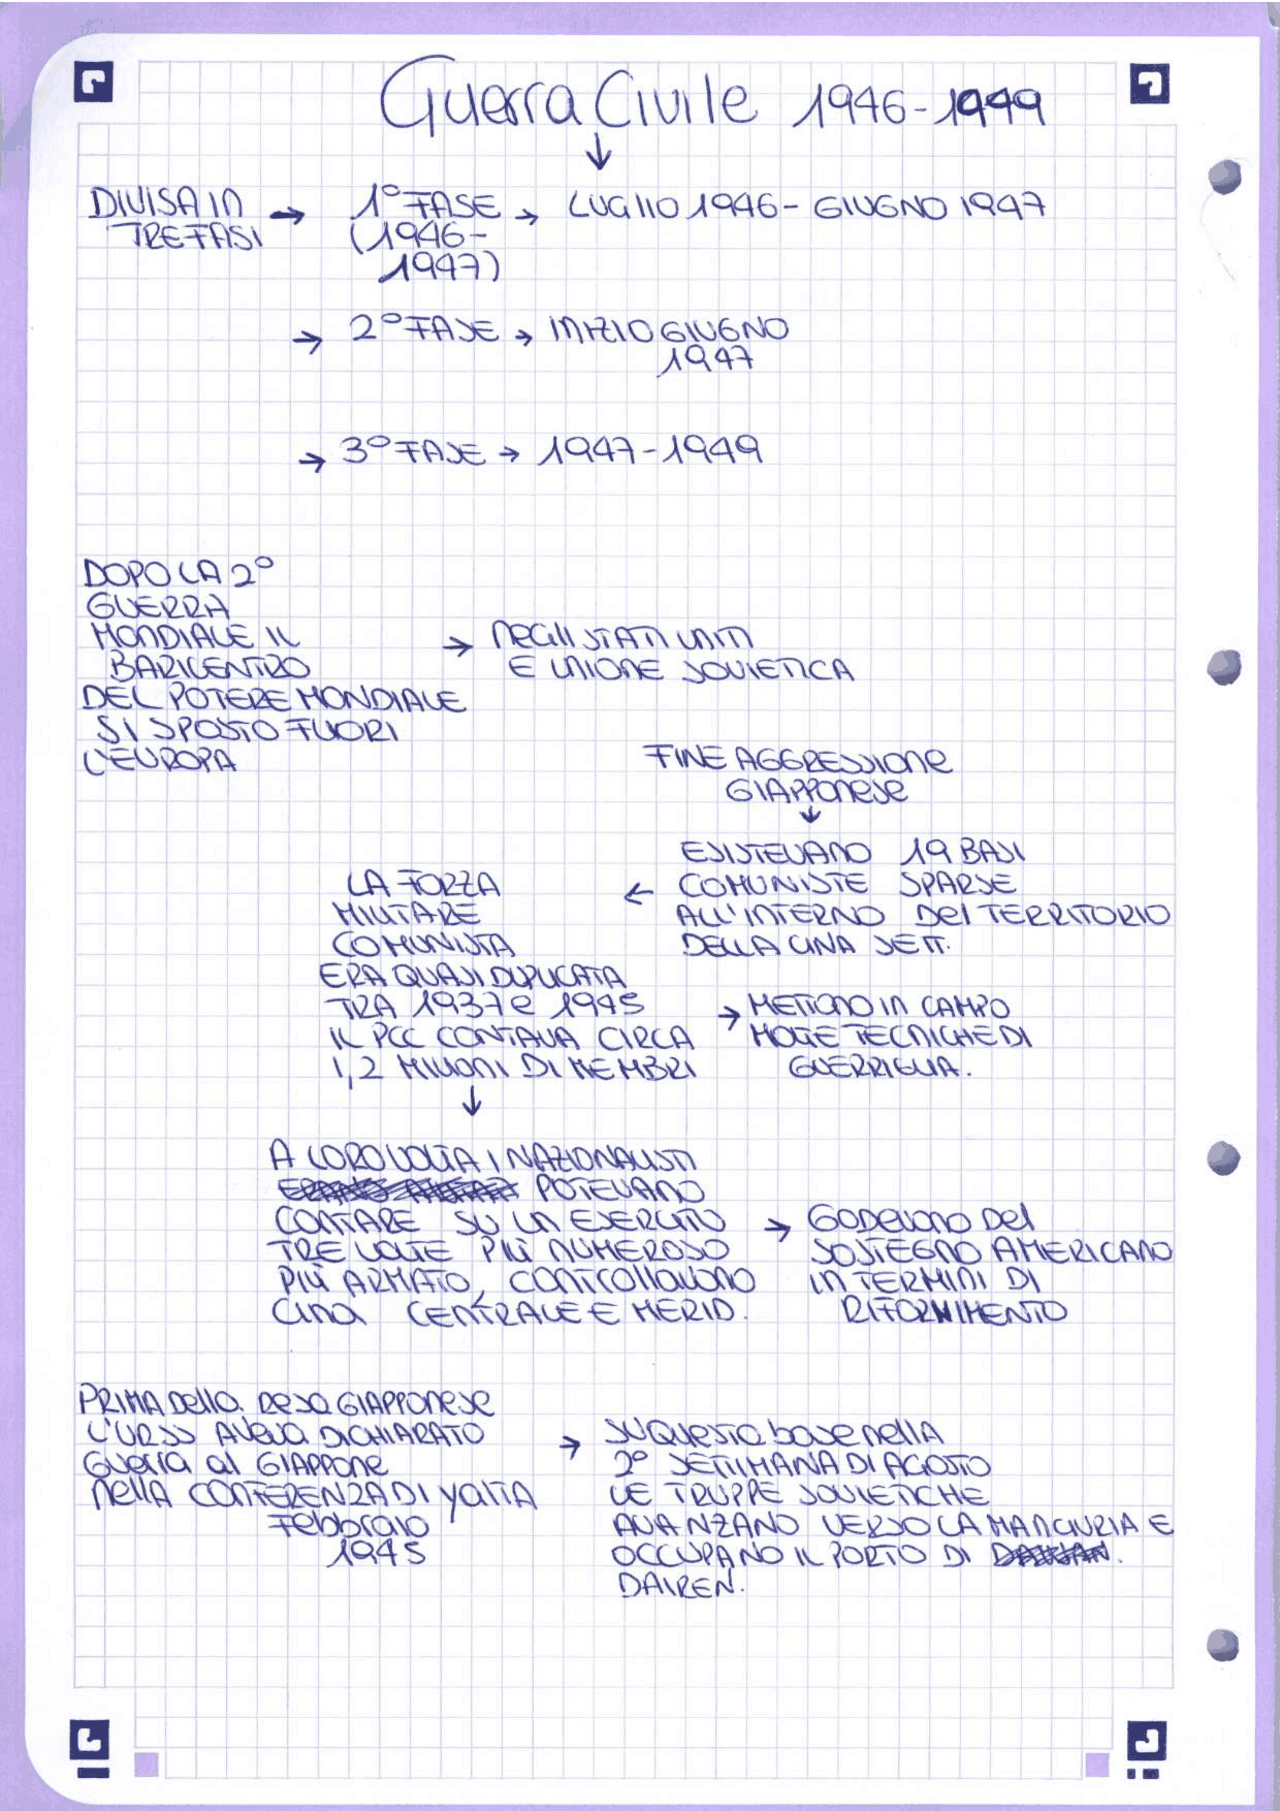 Guerra Civile 1946-1949
DIVISA IN
TRE FASI
1° FASE → LUGLIO 1946 - GIUGNO 1947
(1946-
1947)
→ 2° FASE → INIZIO GIUGNO
1947
→ 3° FASE → 1947-1949
DOPO LA 2°
GUERRA
MONDIALE IL
BARICENTRO
DEL POTERE MONDIALE
SI SPOSTO FUORI
L'EUROPA
→ NEGLI STATI UNITI
E UNIONE SOVIETICA
FINE AGGRESSIONE
GIAPPONESE
↓
ESISTEVANO 19 BASI
COMUNISTE SPARSE
ALL'INTERNO DEL TERRITORIO
DELLA CINA SETT.
← LA FORZA
MILITARE
COMUNISTA
ERA QUASI DUPLICATA
TRA 1937 e 1945
IL PCC CONTAVA CIRCA
1,2 MILIONI DI MEMBRI
→ METTONO IN CAMPO
MOLTE TECNICHE DI
GUERRIGLIA.
↓
A LORO VOLTA I NAZIONALISTI
POTEVANO
CONTARE SU UN ESERCITO
TRE VOLTE PIÙ NUMEROSO
PIÙ ARMATO, CONTROLLAVONO
CINA CENTRALE E MERID.
→ GODEVONO DEL
SOSTEGNO AMERICANO
IN TERMINI DI
RIFORNIMENTO
PRIMA DELLA RESA GIAPPONESE
L'URSS AVEVA DICHIARATO
GUERRA AL GIAPPONE
NELLA CONFERENZA DI YALTA
FEBBRAIO
1945
→ SU QUESTA BASE NELLA
2° SETTIMANA DI AGOSTO
LE TRUPPE SOVIETICHE
AVANZANO VERSO LA MANCIURIA E
OCCUPANO IL PORTO DI
DAIREN.